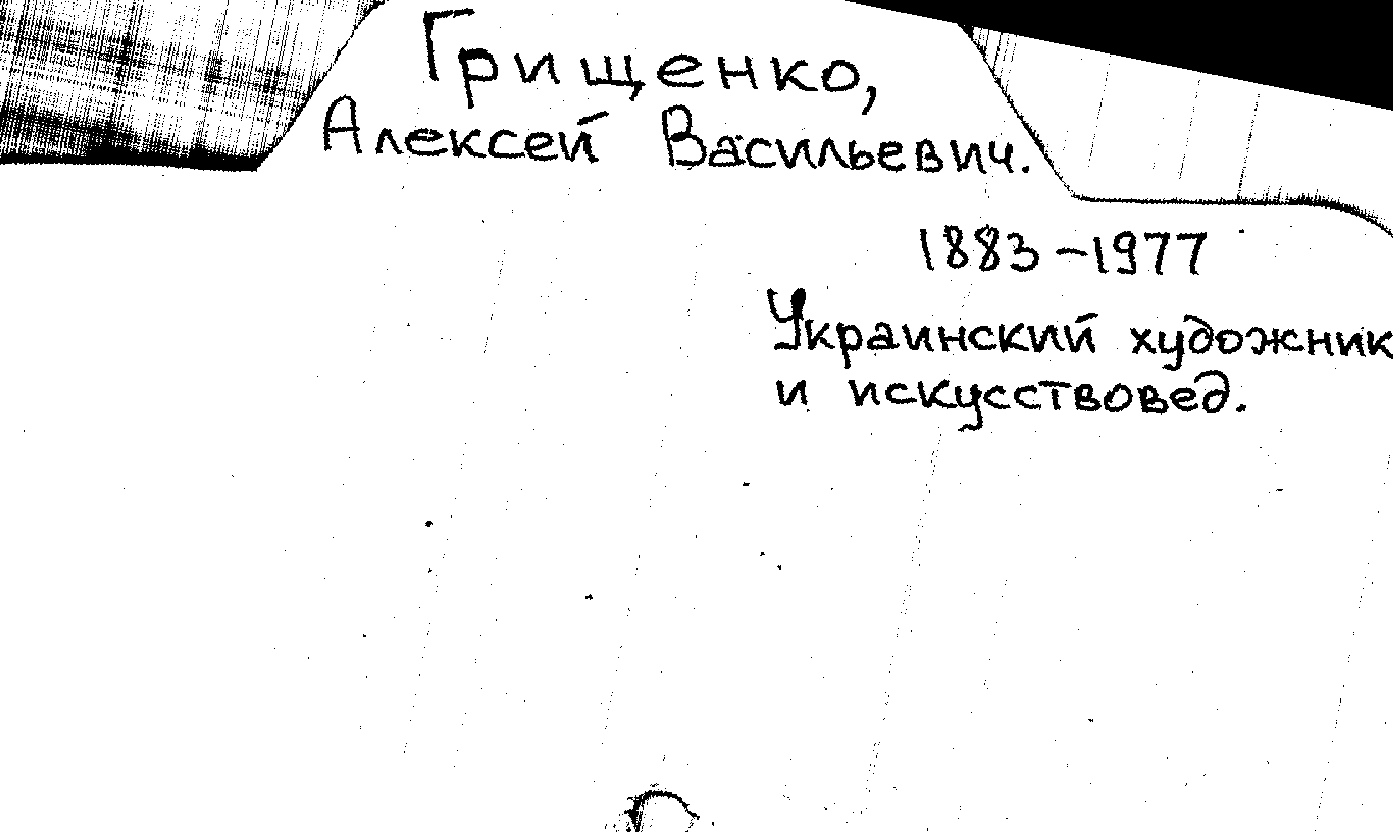 Грищенко,
Алексей Васильевич.
1883-1977
Украинский художник
и искусствовед.